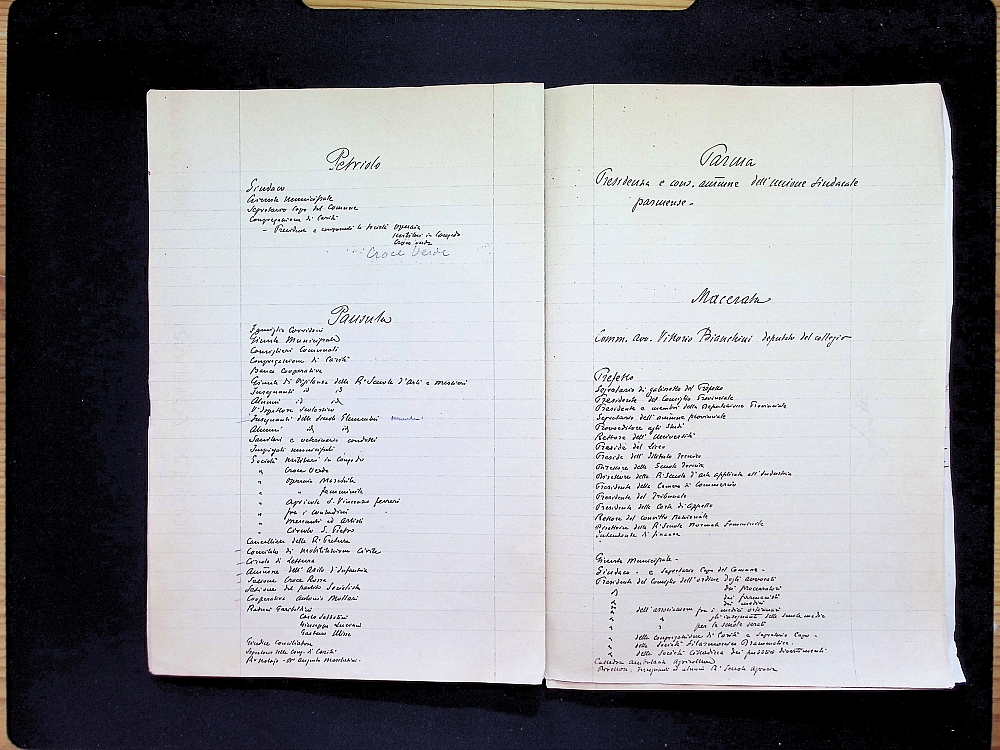 Petriolo
Sindaco
Giunta Municipale
Segretario Capo del Comune
Congregazione di Carità
- Presidente e consiglieri la Società operaia
militari in congedo
Croce verde
Croce Verde
Pausula
Famiglia Corridoni
Giunta Municipale
Consiglieri Comunali
Congregazione di Carità
Banca Cooperativa
Giunta di Vigilanza della R. Scuola d'Arti e mestieri
Insegnanti id id
Alunni id id
V. Ispettore scolastico
Insegnanti delle Scuole Elementari
Alunni id id
Sanitari e veterinario condotti
Impiegati municipali
Società militari in congedo
" Croce Verde
" operaia Maschile
" " femminile
" Agricola S. Vincenzo Ferreri
" fra i contadini
" Mercanti ed artisti
" Circolo S. Pietro
Cancelliere della R. Pretura
Comitato di Mobilitazione Civile
Circolo di Lettura
Ammne dell'Asilo d'Infanzia
Sezione Croce Rossa
Sezione del partito Socialista
Cooperativa Antonio Mollari
Reduci Garibaldini
Carlo
Giuseppe Luciani
Gaetano Ulisse
Giudice Conciliatore
Segretario della Cong. di Carità
R. Notaio - Dr Augusto
Parma
Presidenza e cons. ammne dell'unione Sindacale
parmense -
Macerata
Comm. avv. Vittorio Bianchini deputato del collegio
Prefetto
Segretario di gabinetto del Prefetto
Presidente del Consiglio Provinciale
Presidente e membri della Deputazione Provinciale
Segretario dell'ammne provinciale
Provveditore agli Studi
Rettore dell'Università
Preside del Liceo
Preside dell'Istituto Tecnico
Direttore della Scuola Tecnica
Direttore della R. Scuola d'Arte applicata all'industria
Presidente della Camera di Commercio
Presidente del Tribunale
Presidente della Corte di Appello
Rettore del convitto Nazionale
Direttrice della R. Scuola Normale Femminile
Intendente di finanza
Giunta Municipale -
Sindaco - e Segretario Capo del Comune -
Presidente del Consiglio dell'ordine degli avvocati
" dei procuratori
" dei farmacisti
" dei medici
" dell'associazione fra i medici veterinari
" " gli insegnanti delle scuole medie
" " per le scuole serali
" della congregazione di Carità e Segretario Capo -
" della Società Filarmonico Drammatica -
" della Società cittadina dei pubblici divertimenti
Cattedra ambulante Agricoltura
Direttore, Insegnanti ed alunni R. Scuola Agraria